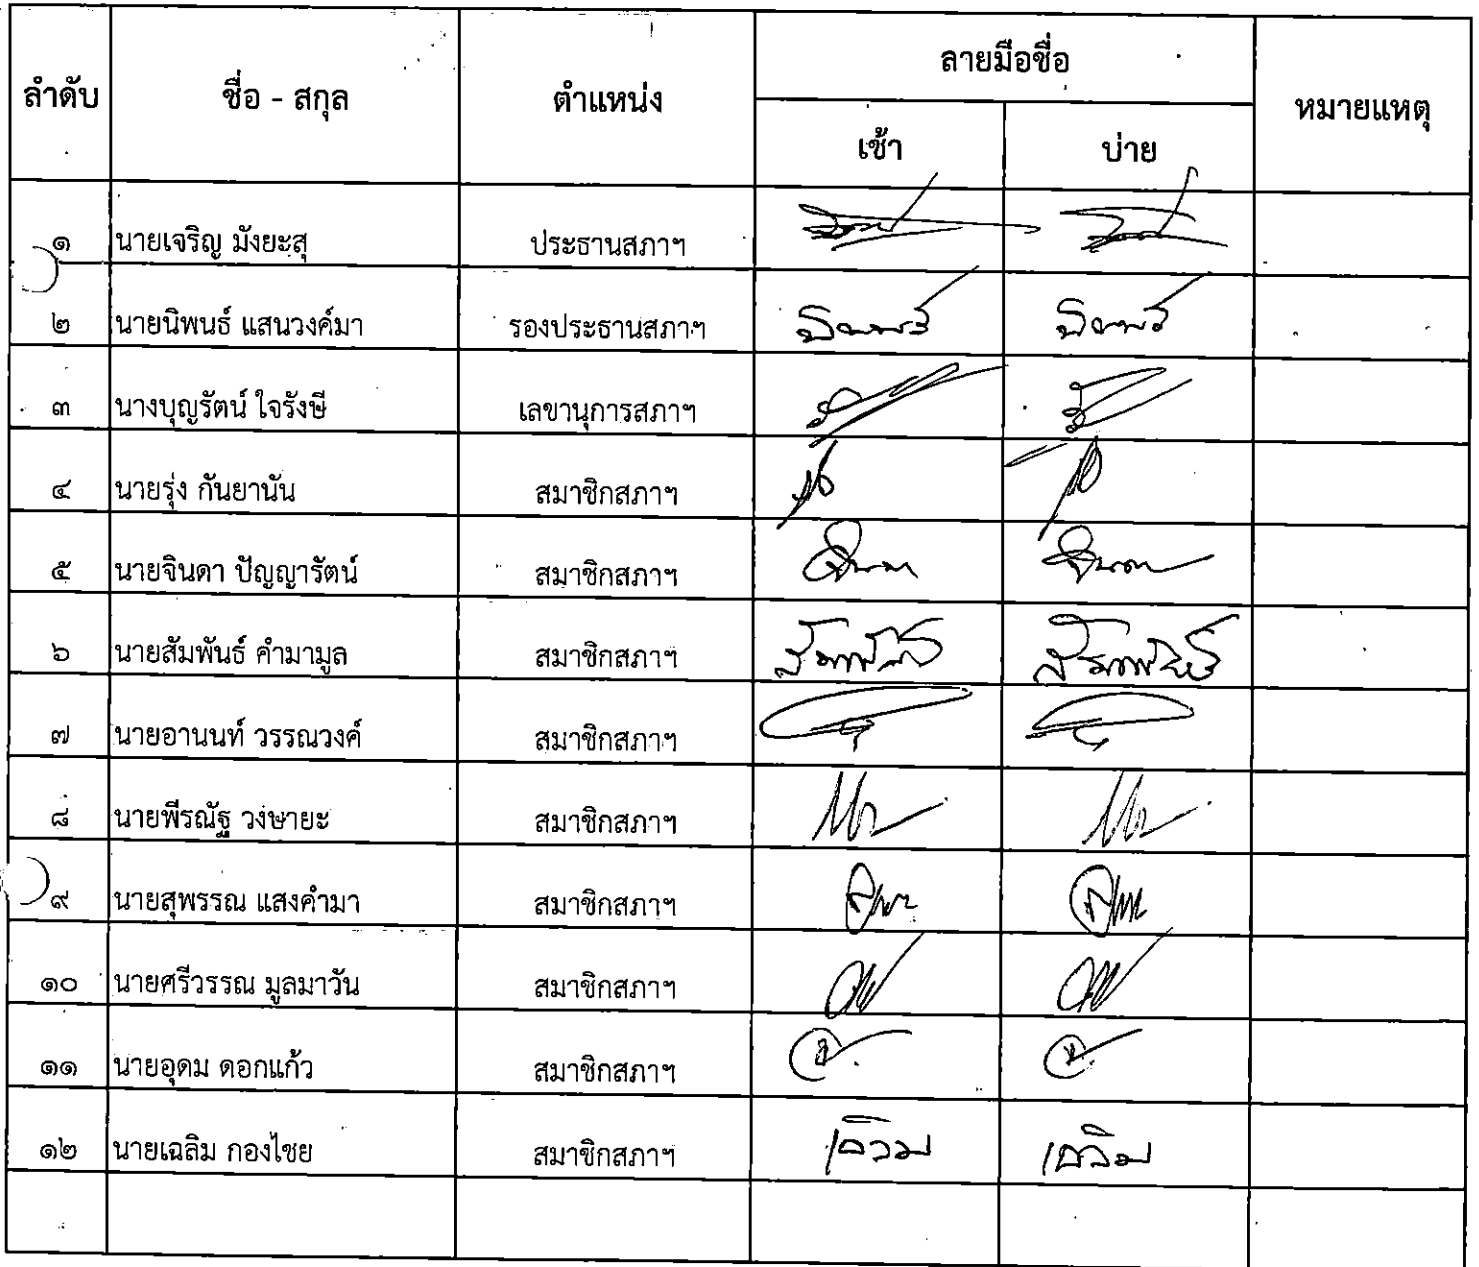 ลำดับ ชื่อ - สกุล ตำแหน่ง ลายมือชื่อ หมายเหตุ
เช้า บ่าย
๑ นายเจริญ มังยะสุ ประธานสภาฯ
๒ นายนิพนธ์ แสนวงค์มา รองประธานสภาฯ
๓ นางบุญรัตน์ ใจรังษี เลขานุการสภาฯ
๔ นายรุ่ง กันยานัน สมาชิกสภาฯ
๕ นายจินดา ปัญญารัตน์ สมาชิกสภาฯ จินดา จินดา
๖ นายสัมพันธ์ คำมามูล สมาชิกสภาฯ สัมพันธ์ สัมพันธ์
๗ นายอานนท์ วรรณวงค์ สมาชิกสภาฯ
๘ นายพีรณัฐ วงษายะ สมาชิกสภาฯ
๙ นายสุพรรณ แสงคำมา สมาชิกสภาฯ
๑๐ นายศรีวรรณ มูลมาวัน สมาชิกสภาฯ
๑๑ นายอุดม ดอกแก้ว สมาชิกสภาฯ
๑๒ นายเฉลิม กองไชย สมาชิกสภาฯ เฉลิม เฉลิม